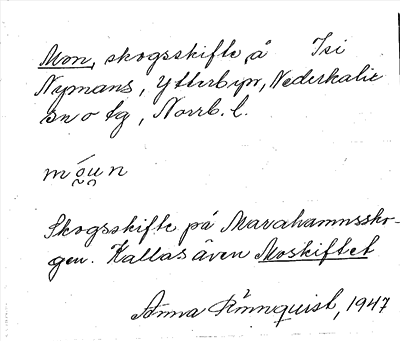 Mon, skogsskifte å Isi
Nymans, Ytterbyn, Nederkalix
sn o tg, Norrb. l.
móu̯n
Skogsskifte på Marahamnssko-
gen. Kallas även Moskiftet
Anna Rönnquist, 1947